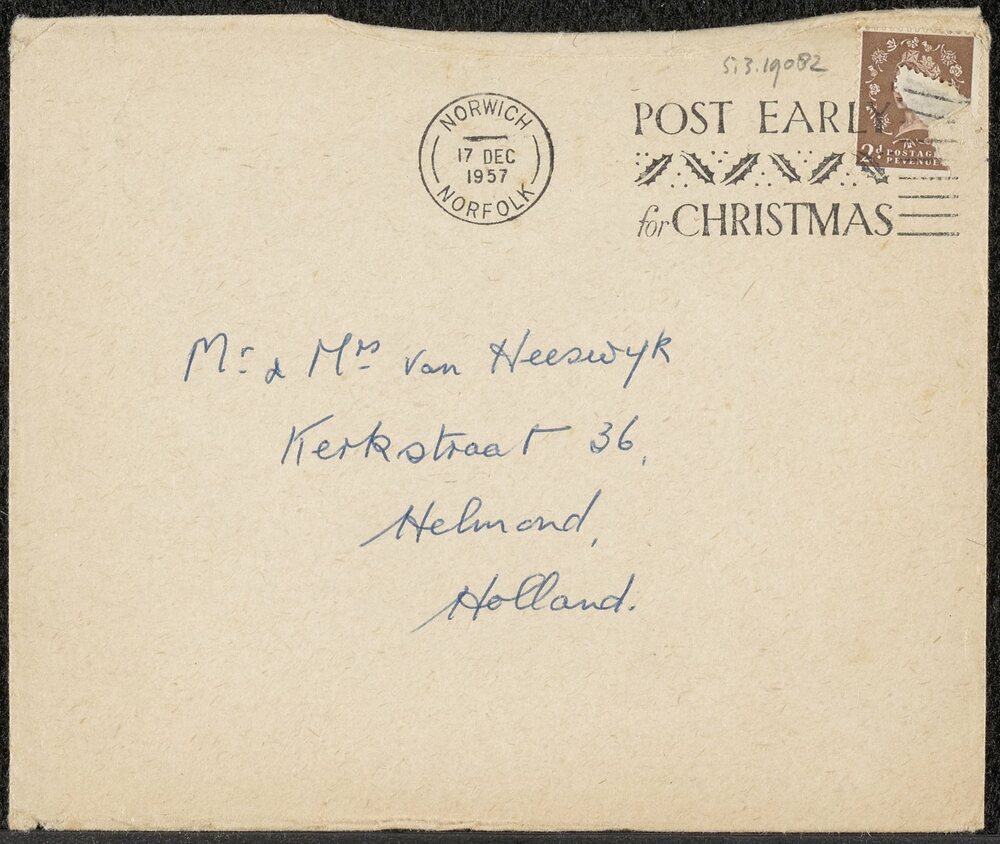 5.3.19082
NORWICH
17 DEC
1957
NORFOLK
POST EARLY
for CHRISTMAS
2d POSTAGE
REVENUE
Mr. & Mrs van Heeswyk
Kerkstraat 36,
Helmond,
Holland.